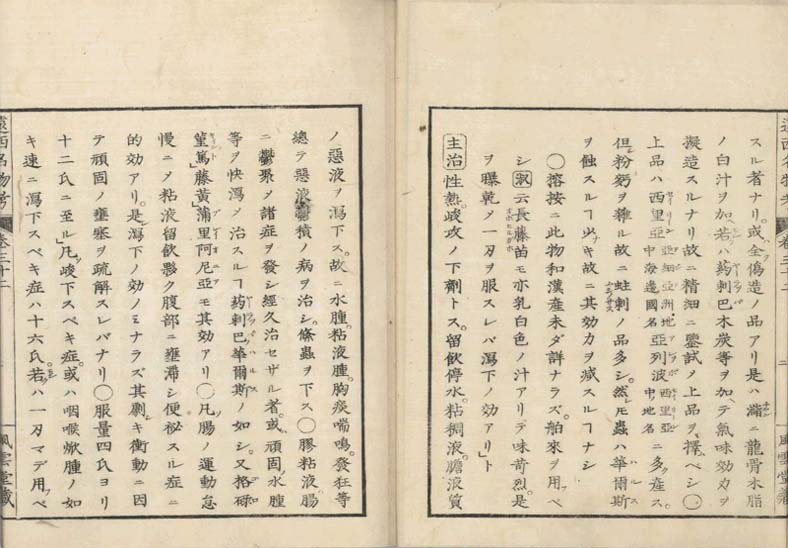 スル者ナリ。或ハ全ク偽造ノ品アリ是ハ瀝ニ龍骨木脂
ノ白汁ヲ加ヘ若ハ葯刺巴木炭等ヲ加ヘテ氣味効力ヲ
擬造スルナリ故ニ精細ニ鑒試メ上品ヲ擇ベシ○
上品ハ西里亞亞細亞洲地中海邊國名亞列波西里亞中ノ地名ニ多ク産ス。
但粉麪ヲ雜ル故ニ蛀刺ノ品多シ。然レ𪜈蟲ハ華爾斯
ヲ蝕スルヿ少キ故ニ其効力ヲ減スルヿナシ
○榕按ニ此物和漢産未ダ詳ナラズ。舶來ヲ用ベ
シ 翁云長藤苗モ亦乳白色ノ汁アリテ味苛烈是
ヲ曝乾メ一刃ヲ服スレバ瀉下ノ効アリ」ト
主治 性熱。峻攻ノ下劑トス。留飲停水。粘稠液。膽液質
ノ惡液ヲ瀉下ス。故ニ水腫。粘液腫。胸痰喘鳴。發狂等
總テ惡液鬱積ノ病ヲ治シ。條蟲ヲ下ス○膠粘液腸
ニ鬱聚メ諸症ヲ發シ經久治セザル者。或頑固ノ水腫
等ヲ快瀉メ治スルヿ葯刺巴華爾斯ノ如シ。又格碌
篁篤」藤黃」蒲里阿尼亞モ其効アリ○凡腸ノ運動怠
慢ニメ粘液留飲夥ク腹部ニ壅滯シ便祕スル症ニ
的効アリ。是レ瀉下ノ効ノミナラズ其劇キ衝動ニ因
テ頑固ノ壅塞ヲ疏解スレバナリ○服量四氏ヨリ
十二氏ニ至ル」凡峻下スベキ症。或ハ咽喉焮腫ノ如
キ速ニ瀉下スベキ症ハ十六氏。若クハ一刃マデ用ベ
遠西名物考
卷三十二
風雲堂藏